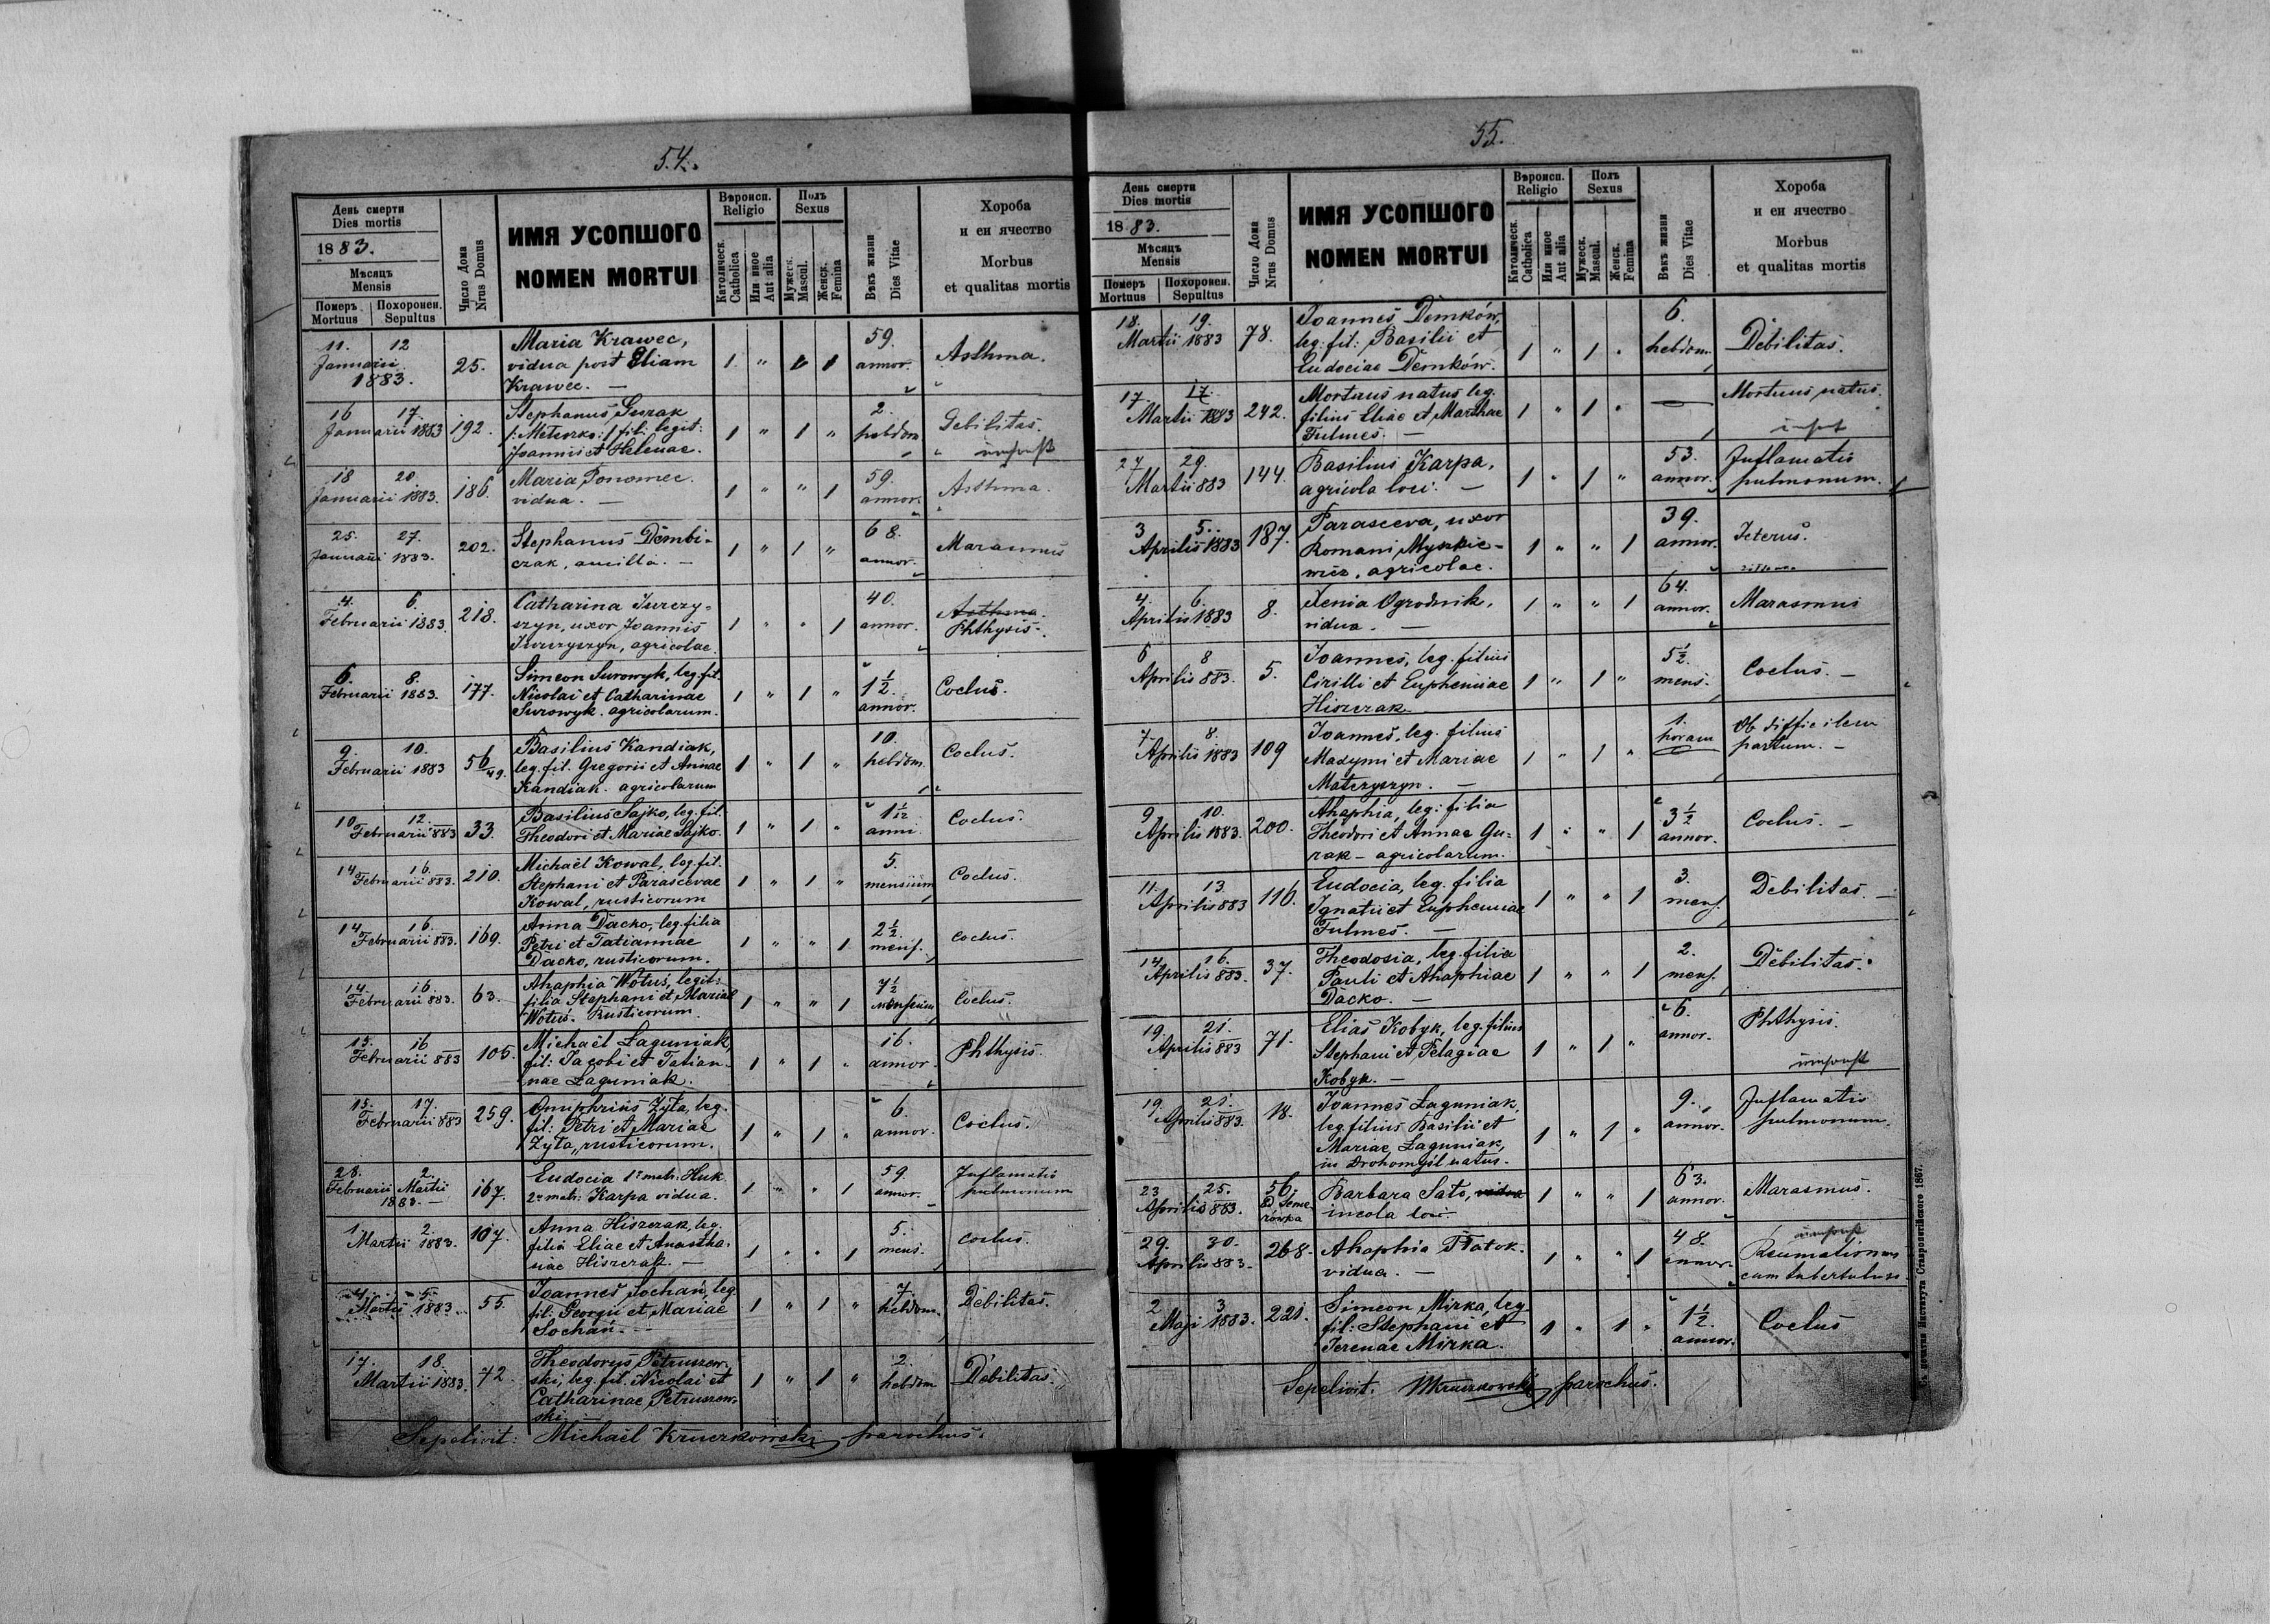 54.
День смерти
Dies mortis
1883.
Мѣсяць
Mensis
Померъ
Mortuus
Похоронен.
Sepultus
Число Дома
Nrus Domus
ИМЯ УСОПШОГО
NOMEN MORTUI
Вѣроисп.
Religio
Католическ.
Catholica
Или иное
Aut alia
Полъ
Sexus
Мужеск.
Mascul.
Женск.
Femina
Вѣкъ жизни
Dies Vitae
Хороба
и еи ячество
Morbus
et qualitas mortis
11. 12 Januarii 1883. 25.
Maria Krawec,
vidua post Eliam
Krawec. —
1 " 1 59. annor. Asthma.
16 17. Januarii 1883 192.
Stephanus Gurak
/:Meteszko:/ fil: legit:
Joannis et Helenae.
1 " 1 " 2. hebdom Debilitas.
18 20. Januarii 1883. 186.
Maria Ponomec.
vidua. —
1 " " 1 59. annor. Asthma.
25. 27. Januarii 1883. 202.
Stephanus Dembi-
czak, ancilla. —
1 " 1 " 68. annor. Marasmus
4. 6. Februarii 1883. 218.
Catharina Jurczy-
szyn, uxor Joannis
Jurczyszyn, agricolae.
1 " " 1 40. annor. Asthma. Phthysis.
6. 8. Februarii 1883. 177.
Simeon Surowyk, leg. fil.
Nicolai et Catharinae
Surowyk. agricolarum.
1 " 1 " 1 1/2. annor. Coclus.
9. 10. Februarii 1883 56/49.
Basilius Kandiak,
leg. fil. Gregorii et Annae
Kandiak. agricolarum
1 " 1 " 10. hebdom. Coclus.
10 12. Februarii 883 33.
Basilius Sajko, leg. fil.
Theodori et Mariae Sajko.
1 " 1 " 1 1/12 anni. Coclus.
14 16. Februarii 883. 210.
Michaël Kowal, leg. fil.
Stephani et Parascevae
Kowal, rusticorum
1 " 1 " 5. mensium Coclus.
14 16. Februarii 883. 169.
Anna Dacko, leg. filia
Petri et Tatiannae
Dacko, rusticorum.
1 " " 1 2 1/2. mens. Coclus.
14. 16. Februarii 883. 63.
Ahaphia Wotus, legit:
filia Stephani et Mariae
Wotus. Rusticorum.
1 " " 1 7 1/2 mensium Coclus.
15. 16 Februarii 883 105.
Michaël Łaguniak,
fil: Jacobi et Tatian-
nae Łaguniak.
1 " 1 " 16. annor. Phthysis.
15. 17. Februarii 883 259.
Onuphrius Zyła, leg.
fil: Petri et Mariae
Zyła, rusticorum.
1 " 1 " 6. annor. Coclus.
28. 2. Februarii Martii 1883. — 167.
Eudocia 1º matr: Huk
2º matr: Karpa vidua.
1 " " 1 59. annor. Inflamatio pulmonum
1. 2. Martii 1883. 107.
Anna Hiszczak, leg.
filia Eliae et Anastha-
siae Hiszczak. —
1 " " 1 5. mens. Coclus.
4. 5. Martii 1883. 55.
Joannes Sochań, leg.
fil: Georgii et Mariae
Sochań. —
1 " 1 " 7. hebdom. Debilitas.
17. 18. Martii 1883. 72.
Theodorus Petruszew-
ski, leg. fil. Nicolai et
Catharinae Petruszew-
ski. —
1 " 1 " 2. hebdom Debilitas.
Sepelivit: Michaël Kruczkowski parochus.
55.
День смерти
Dies mortis
1883.
Мѣсяць
Mensis
Померъ
Mortuus
Похоронен.
Sepultus
Число Дома
Nrus Domus
ИМЯ УСОПШОГО
NOMEN MORTUI
Вѣроисп.
Religio
Католическ.
Catholica
Или иное
Aut alia
Полъ
Sexus
Мужеск.
Mascul.
Женск.
Femina
Вѣкъ жизни
Dies Vitae
Хороба
и еи ячество
Morbus
et qualitas mortis
18. 19. Martii 1883 78.
Joannes Demków,
leg: fil: Basilii et
Eudociae Demków.
1 " 1 " 6. hebdom. Debilitas.
17 17. Martii 1883 242.
Mortuus natus leg.
filius Eliae et Marthae
Fulmes. —
1 " 1 " — Mortuus natus.
27 29. Martii 883 144.
Basilius Karpa,
agricola loci. —
1 " 1 " 53. annor. Inflamatio pulmonum.
3 5. Aprilis 1883 187.
Parasceva, uxor
Romani Myszkie-
wicz, agricolae.
1 " " 1 39. annor. Icterus.
4. 6. Aprilis 1883 8.
Xenia Ogrodnik,
vidua. —
1 " " 1 64. annor. Marasmus
6 8 Aprilis 883. 5.
Joannes, leg. filius
Cirilli et Eupheniae
Hiszczak.
1 " 1 " 5 1/2. mens. Coclus. —
7. 8. Aprilis 1883 109
Joannes, leg. filius
Maxymi et Mariae
Matczyszyn. —
1 " 1 " 1. horam Ob difficilem partum. —
9 10. Aprilis 1883. 200.
Ahaphia, leg: filia
Theodori et Annae Gu-
rak — agricolarum.
1 " " 1 3 1/2 annor. Coclus. —
11. 13. Aprilis 883 116.
Eudocia, leg. filia
Ignatii et Eupheniae
Fulmes. —
1 " " 1 3. mens. Debilitas. —
14 16. Aprilis 883. 37.
Theodosia, leg. filia
Pauli et Ahaphiae
Dacko. —
1 " " 1 2. mens. Debilitas.
19. 21. Aprilis 883 71.
Elias Kobyk, leg. filius
Stephani et Pelagiae
Kobyk. —
1 " 1 " 6. annor. Phthysis.
19 21. Aprilis 883. 18.
Joannes Łaguniak,
leg. filius Basilii et
Mariae Łaguniak,
in Drohomysl natus.
1 " 1 " 9. annor. Inflamatio pulmonum.
23 25. Aprilis 883. 56.
Barbara Sato, vidua
incola loci.
1 " " 1 63. annor. Marasmus.
29. 30. Aprilis 883. 268.
Ahaphia Płatok.
vidua. —
1 " " 1 48. annor. Reumatismus
2 3 Maji 1883. 221.
Simeon Mirka, leg.
fil: Stephani et
Irenae Mirka.
1 " 1 " 1 1/2. annor. Coclus
Sepelivit. MKruczkowski parochus.
Съ печатни Института Ставропигійского 1867.